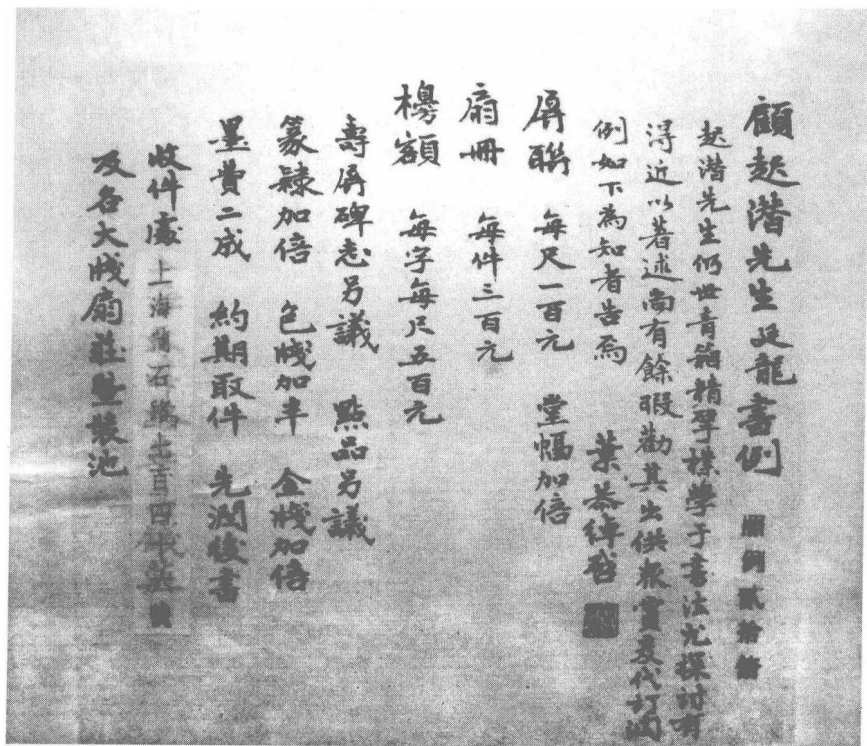 顧起潛先生廷龍書例 照例貳拾倍
起潛先生仍世青箱精揅樸學于書法尤探討有
得近以著述尚有餘暇勸其出供衆賞爰代訂潤
例如下為知者告焉 葉恭綽啓
屏聯 每尺一百元 堂幅加倍
扇冊 每件三百元
榜額 每字每尺五百元
壽屏碑志另議 點品另議
篆隸加倍 色牋加半 金牋加倍
墨費二成 約期取件 先潤後書
收件處 上海蒲石路七百四十六號
及各大牋扇莊暨裝池